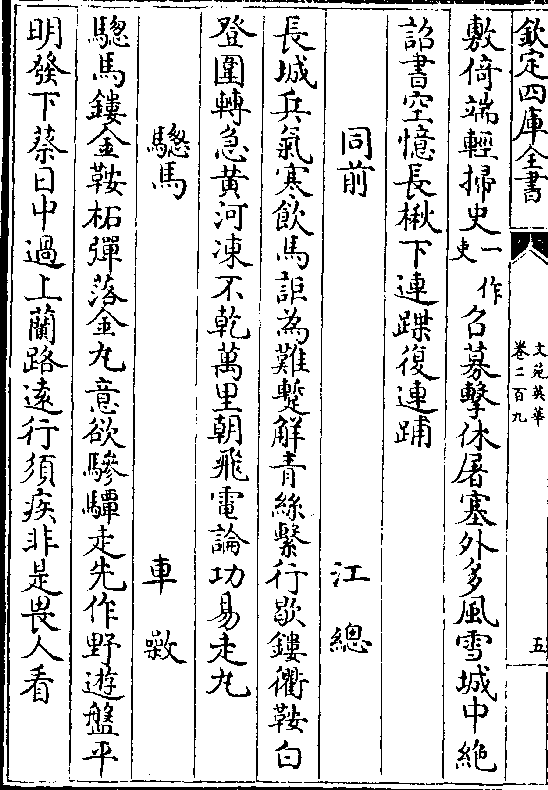 欽定四庫全書
文苑英華
卷二百九
五
敷倚端輕掃史一作吏召募擊休屠塞外多風雪城中絶
詔書空憶長楸下連蹀復連
同前
江總
長城兵氣寒飲馬詎為難蹔解青絲繫行歇鏤衢鞍白
登圍轉急黄河凍不乾萬里朝飛電論功易走丸
驄馬
車敹
驄馬鏤金鞍柘彈落金丸意欲驂驔走先作野遊盤平
明發下蔡日中過上蘭路逺行須疾非是畏人看